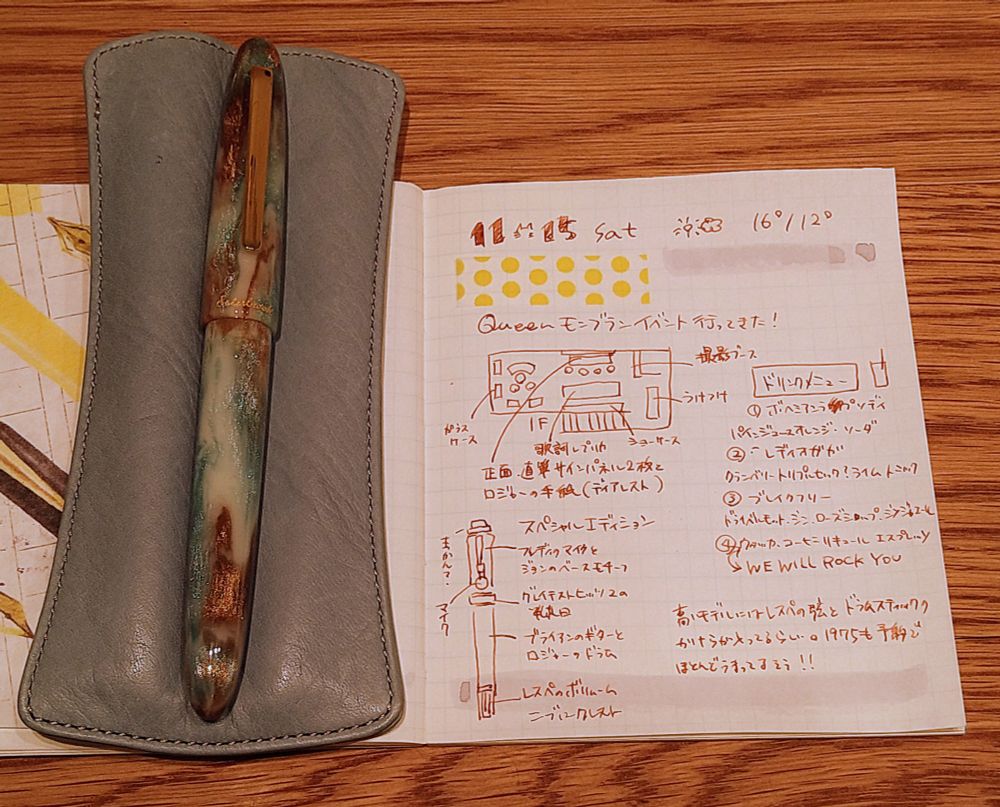 11 15 sat 16°/12°
Queen モンブランイベント行ってきた!
撮影ブース
うけつけ
ガラス
ケース
1F
歌詞レプリカ
ショーケース
正面、直筆サインパネル2枚と
ロジャーの手紙(ディアレスト)
ドリンクメニュー
① ボヘミアンラプソディ
パインジュースオレンジ・ソーダ
② レディオガガ
クランベリートリプルセック?ライムトニック
③ ブレイクフリー
ドライベルモット、ジン、ローズシロップ、ジンジャエール
④ ウォッカ、コーヒーリキュール エスプレッソ
WE WILL ROCK YOU
スペシャルエディション
フレディのマイクと
ジョンのベースモチーフ
マイク
グレイテストヒッツ2の
発売日
ブライアンのギターと
ロジャーのドラム
レスペのボリューム
ニブにクレスト
高いモデルにはレスペの弦とドラムスティックの
かけらが入ってるらしい。1975も予約で
ほとんどうまってるそう!!
Esterbrook